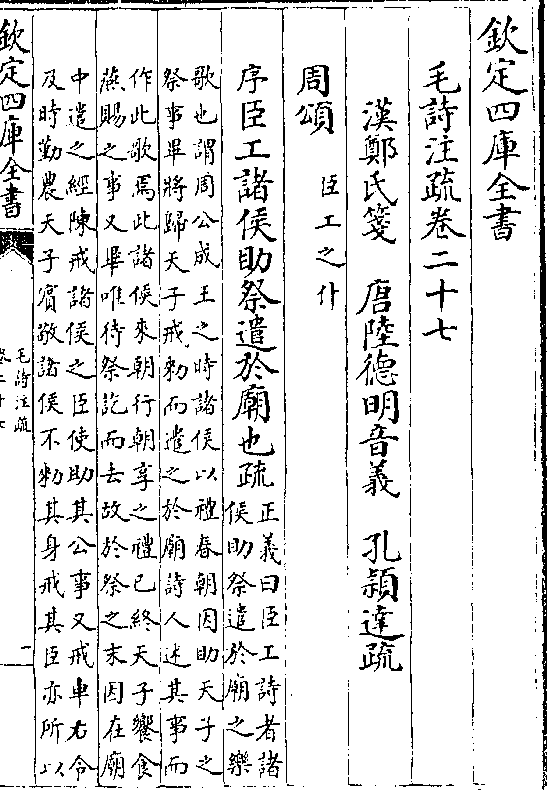 欽定四庫全書
毛詩注疏卷二十七
漢鄭氏箋　唐陸德明音義　孔穎達疏
周頌　臣工之什
序臣工諸侯助祭遣於廟也疏
正義曰臣工詩者諸
侯助祭遣於廟之樂
歌也謂周公成王之時諸侯以禮春朝因助天子之
祭事畢將歸天子戒勑而遣之於廟詩人述其事而
作此歌焉此諸侯來朝行朝享之禮已終天子饗食
燕賜之事又畢唯待祭訖而去故於祭之末因在廟
中遣之經陳戒諸侯之臣使助其公事又戒車右令
及時勤農天子賓敬諸侯不勑其身戒其臣亦所以
欽定四庫全書
毛詩注疏
卷二十七
一